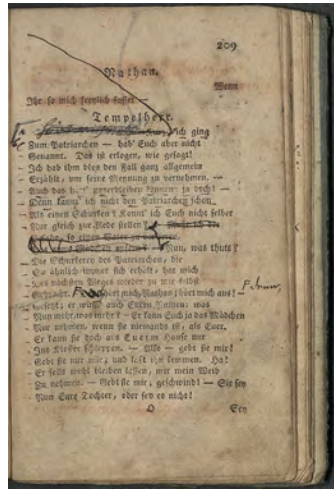 209
Nathan.
Wenn
Ihr so mich freylich fasset —
Tempelherr.
ich ging
Zum Patriarchen — hab' Euch aber nicht
Genannt. Das ist erlogen, wie gesagt!
Ich hab ihm blos den Fall ganz allgemein
Erzählt, um seine Meynung zu vernehmen. —
Auch das hätt' unterbleiben können: ja doch! —
Denn kannt' ich nicht den Patriarchen schon
Als einen Schurken? Konnt' ich Euch nicht selber
Nur gleich zur Rede stellen? —
Nun, was thuts?
Die Schurkerey des Patriarchen, die
So ähnlich immer sich erhält, hat mich
Des nächsten Weges wieder zu mir selbst
Gebracht. — hört mich, Nathan; hört mich aus!
Gesetzt; er wüßt' auch Euern Namen: was
Nun mehr, was mehr? — Er kann Euch ja das Mädchen
Nur nehmen, wenn sie niemands ist, als Euer.
Er kann sie doch aus Euerm Hause nur
Ins Kloster schleppen. — Also — gebt sie mir!
Gebt sie nur mir; und laßt ihn kommen. Ha!
Er solls wohl bleiben lassen, mir mein Weib
Zu nehmen. — Gebt sie mir; geschwind! — Sie sey
Nun Eure Tochter, oder sey es nicht!
O
Sey